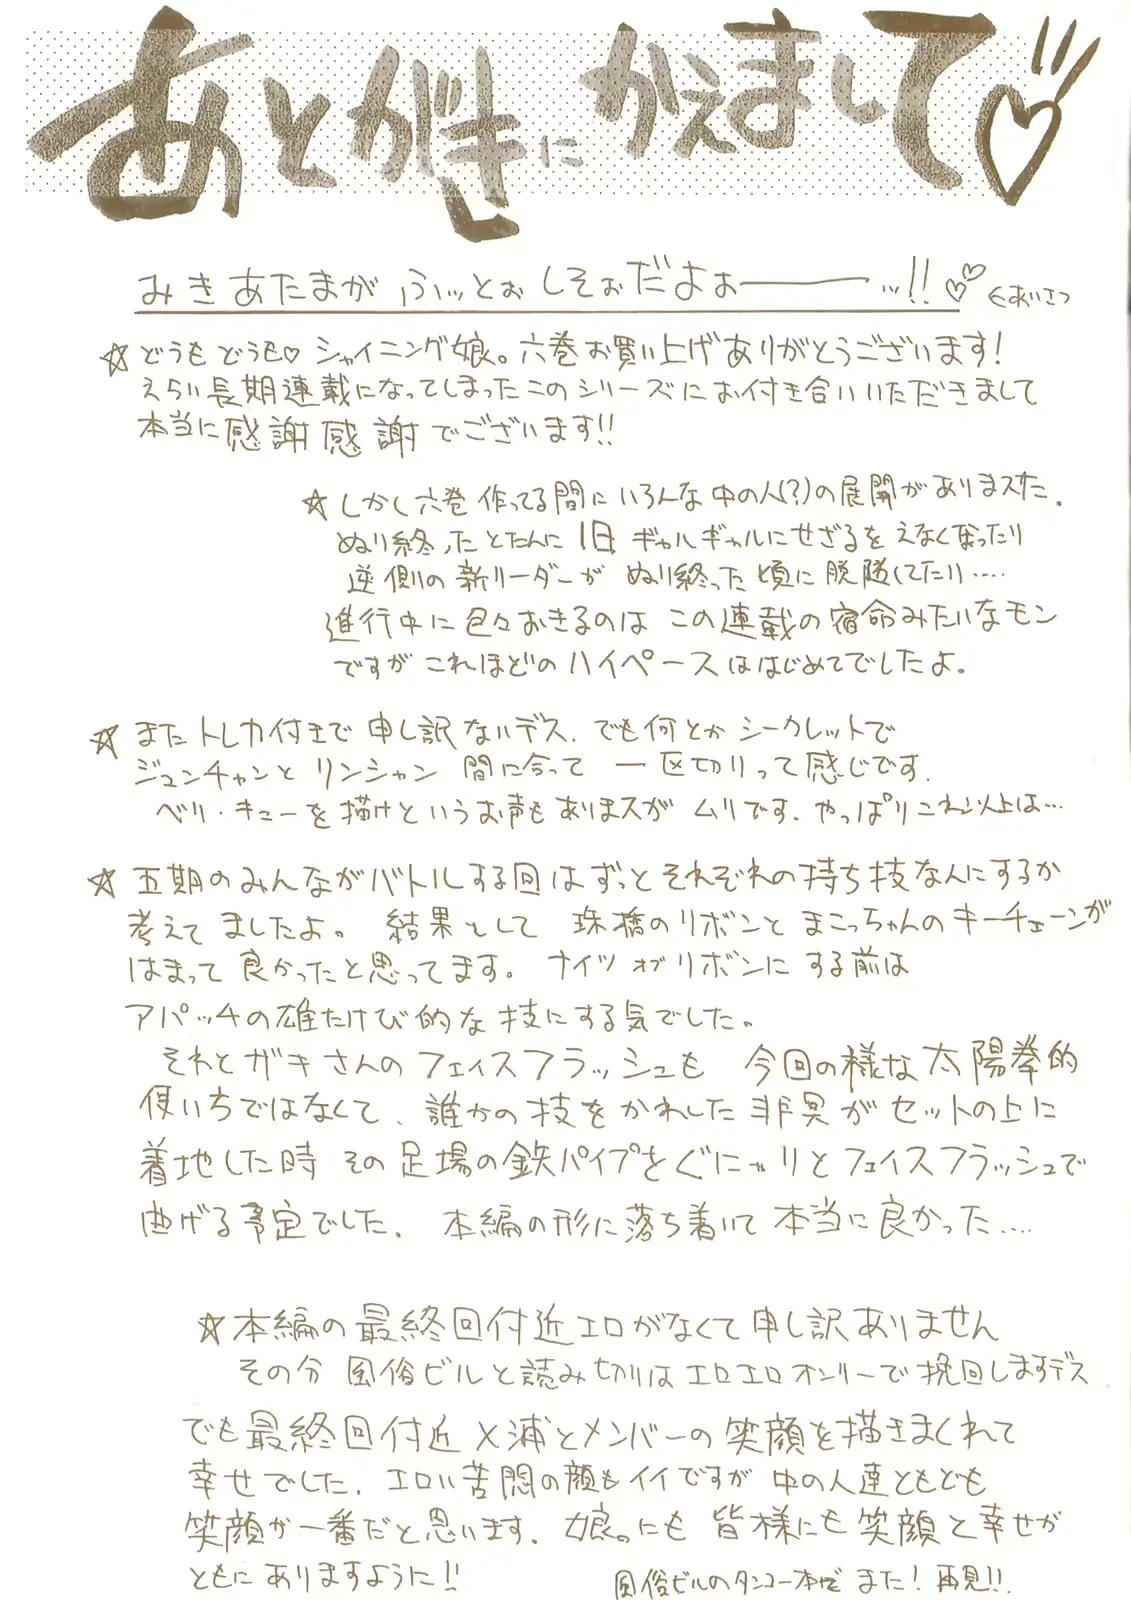 あとがきにかえまして♡
みきあたまがふぃっとぉしそぉだよぉーーー…!!♡♡ ←あいさつ
☆どうもどうも♡シャイニング娘。六巻お買い上げありがとうございます!
えらい長期連載になってしまったこのシリーズにお付き合いいただきまして
本当に感謝感謝でございます!!
☆しかし六巻作ってる間にいろんな中の人(?)の展開がありまスた.
ぬり終ったとたんに1日ギャルギャルにせざるをえなくなったり
逆側の新リーダーがぬり終った頃に脱隊してたり....
進行中に色々おきるのはこの連載の宿命みたいなモン
ですがこれほどのハイペースははじめてでしたよ。
☆またトレカ付きで申し訳ないデス.でも何とかシークレットで
ジュンチャンとリンシャン間に合って一区切りって感じです.
ベリ・キューを描けというお声もありまスがムリです.やっぱりこれ以上は…
☆五期のみんながバトルする回はずっとそれぞれの持ち技なんにするか
考えてましたよ。結果として珠橋のリボンとまこっちゃんのキーチェーンが
はまって良かったと思ってます。ナイツオブリボンにする前は
アパッチの雄たけび的な技にする気でした。
それとガキさんのフェイスフラッシュも今回の様な太陽拳的
使いちではなくて、誰かの技をかわした非冥がセットの上に
着地した時その足場の鉄パイプをぐにゃりとフェイスフラッシュで
曲げる予定でした.本編の形に落ち着いて本当に良かった....
☆本編の最終回付近エロがなくて申し訳ありません
その分風俗ビルと読み切りはエロエロオンリーで挽回しますデス
でも最終回付近メ浦とメンバーの笑顔を描きまくれて
幸せでした.エロい苦悶の顔もイイですが中の人達ともども
笑顔が一番だと思います.娘。にも皆様にも笑顔と幸せが
ともにありますように!!
風俗ビルのタンコー本でまた!再見!!